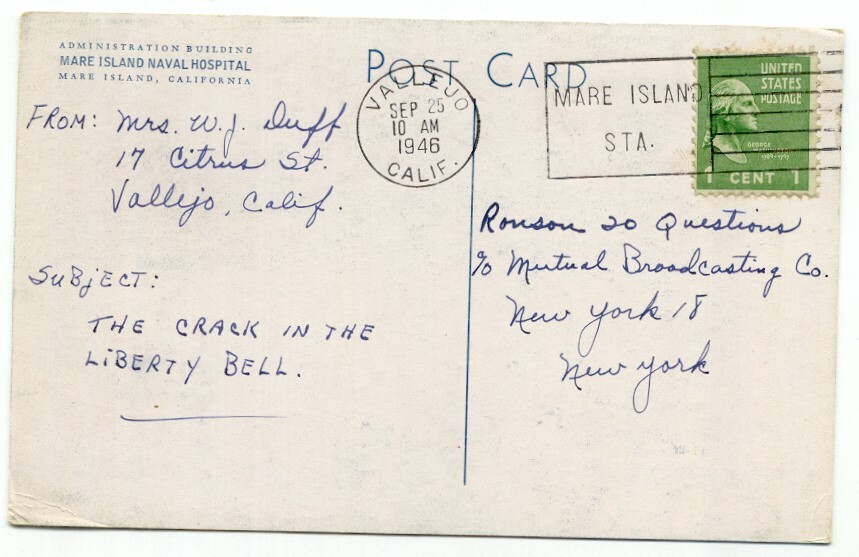 ADMINISTRATION BUILDING
MARE ISLAND NAVAL HOSPITAL
MARE ISLAND, CALIFORNIA
POST CARD
VALLEJO
SEP 25
10 AM
1946
CALIF.
MARE ISLAND
STA.
UNITED
STATES
POSTAGE
GEORGE
1 CENT 1
FROM: Mrs. W. J. Duff
17 Citrus St.
Vallejo, Calif.
SUBJECT:
THE CRACK IN THE
LIBERTY BELL.
Ronson 20 Questions
c/o Mutual Broadcasting Co.
New York 18
New York